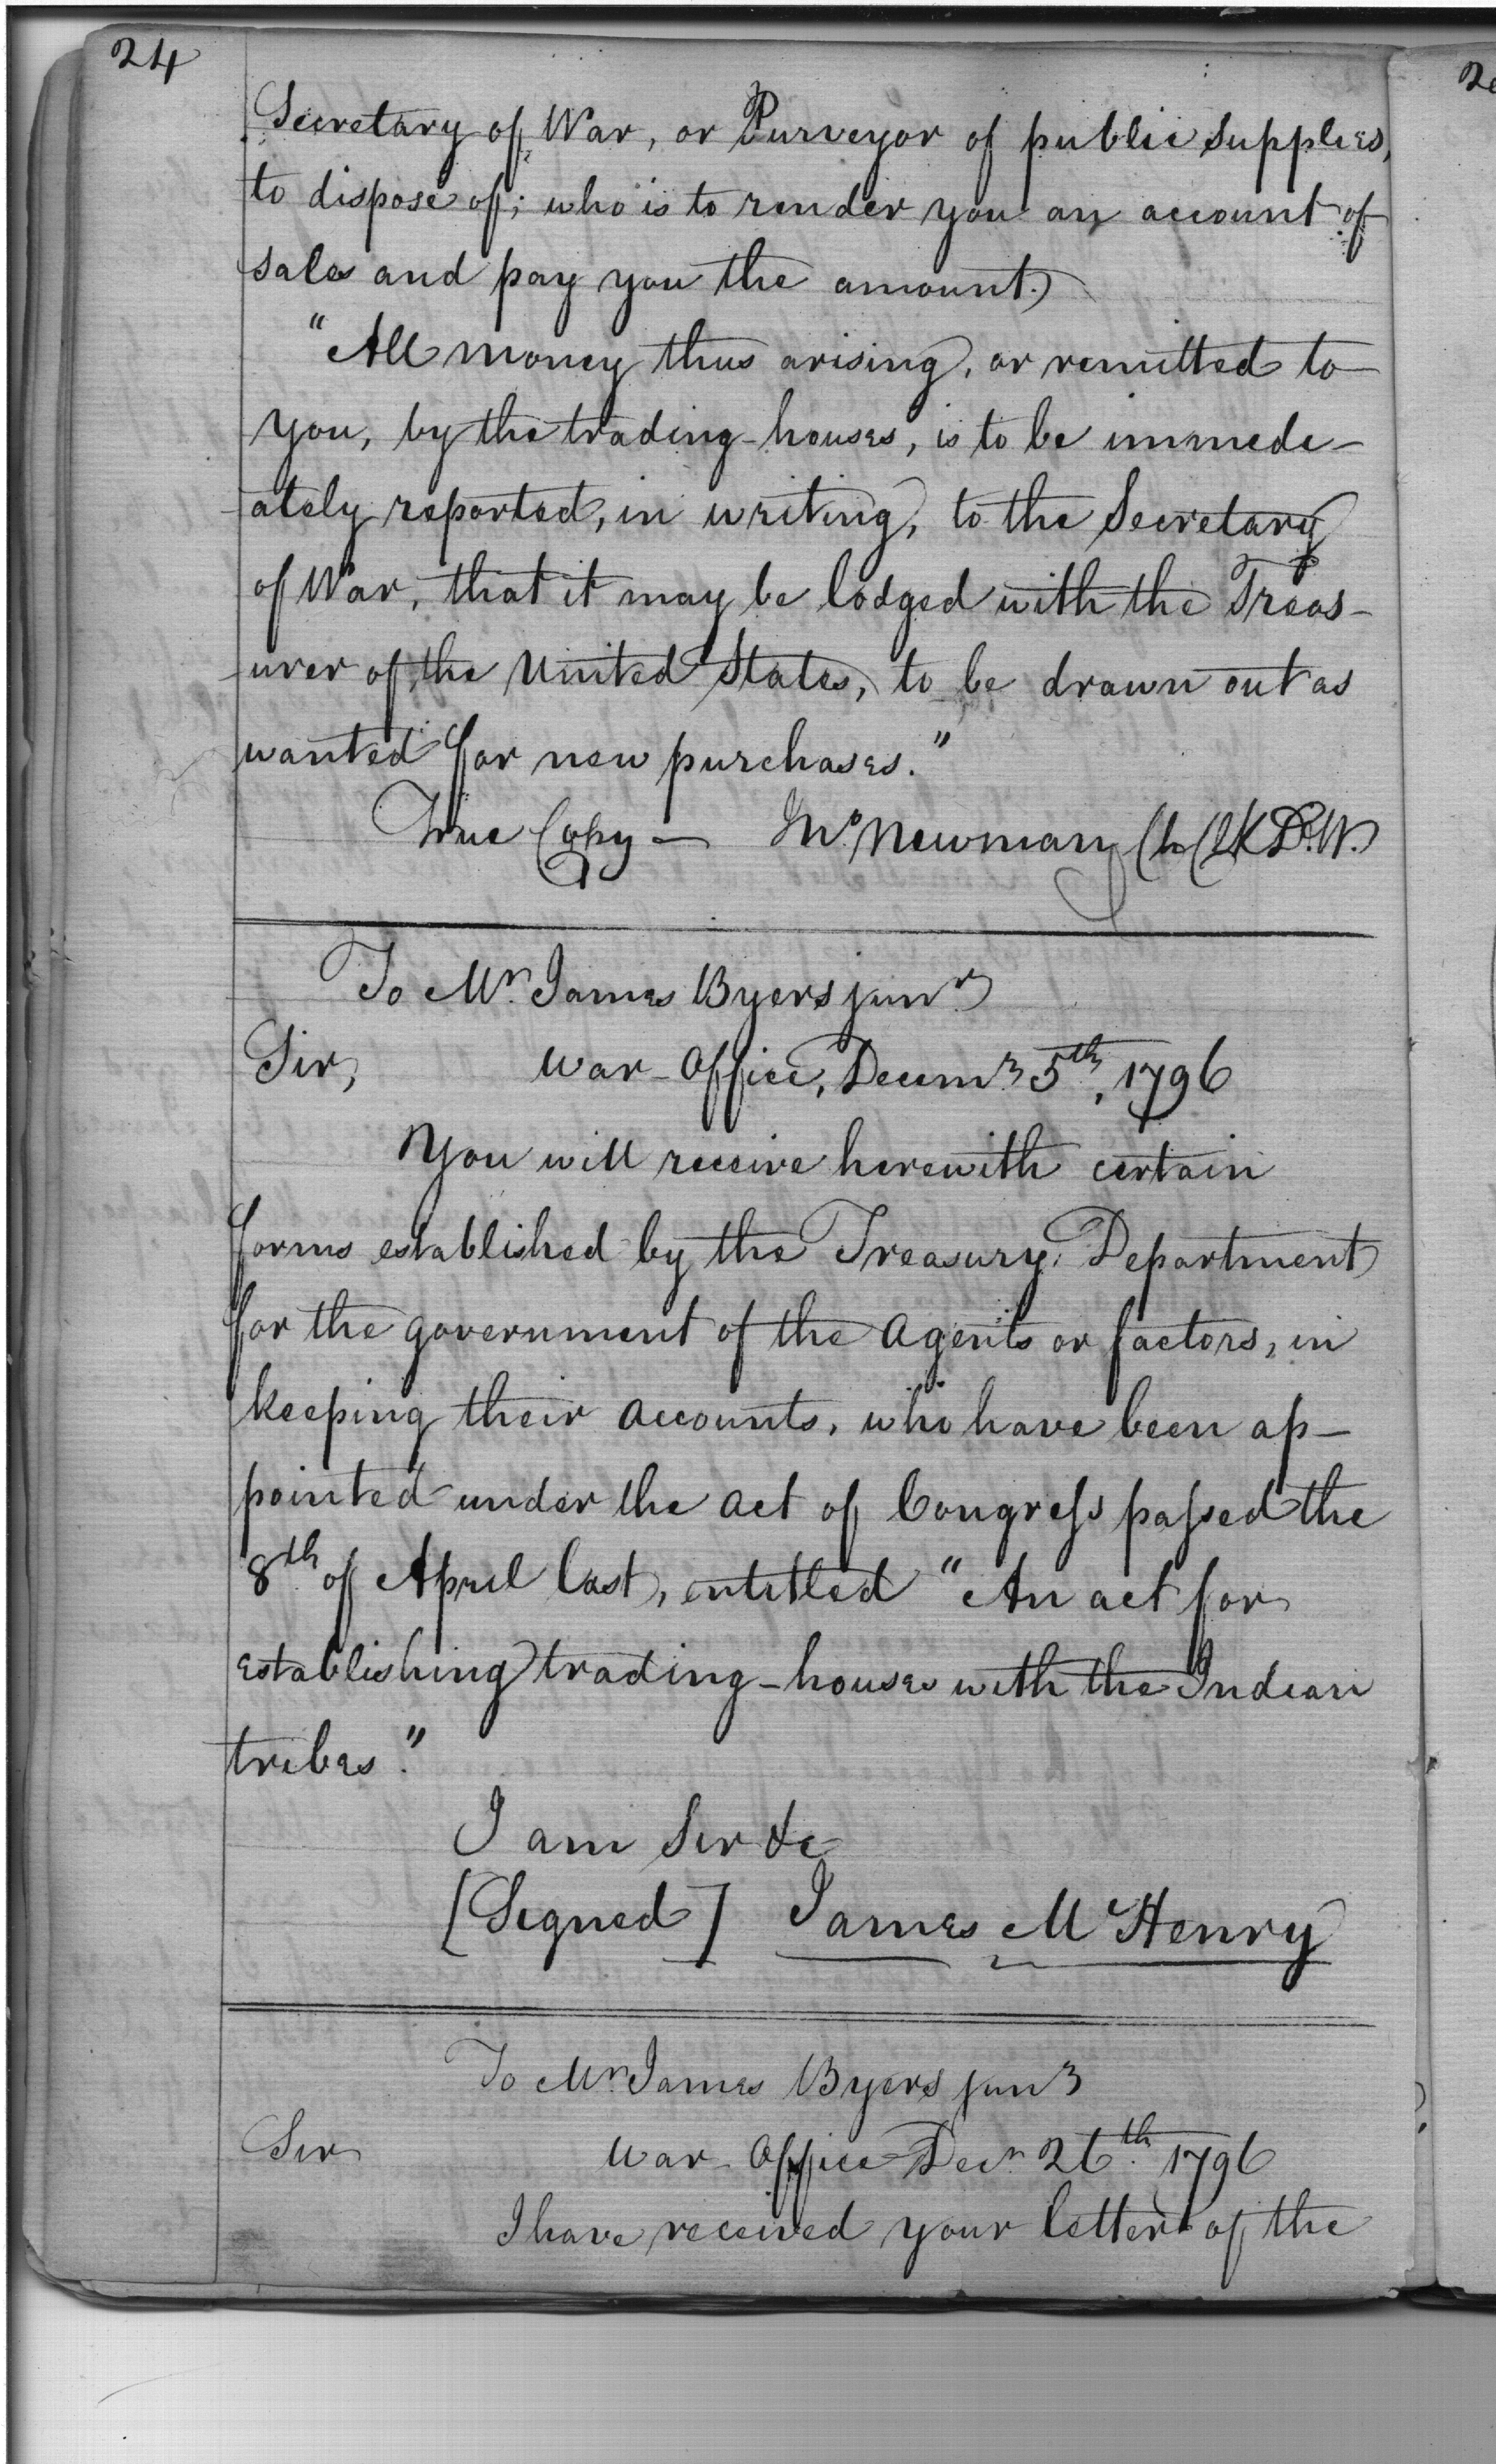 24
Secretary of War, or Purveyor of public supplies,
to dispose of; who is to render you an account of
sales and pay you the amount.
"All money thus arising, or remitted to
you, by the trading-houses, is to be immede-
-ately reported, in writing, to the Secretary
of War, that it may be lodged with the Treas-
-urer of the United States, to be drawn out as
wanted for new purchases."
True Copy — Jno Newman Ch Clk D.W.
To Mr. James Byers junr
Sir,
War-Office, Decemr 5th, 1796
You will receive herewith certain
forms established by the Treasury Department
for the government of the Agents or factors, in
keeping their accounts, who have been ap-
pointed under the act of Congress passed the
8th of April last, entitled "An act for
establishing trading-houses with the Indian
tribes."
I am Sir &c
[Signed] James McHenry
To Mr. James Byers junr
Sir
War-Office Decr 26th 1796
I have received your letter of the